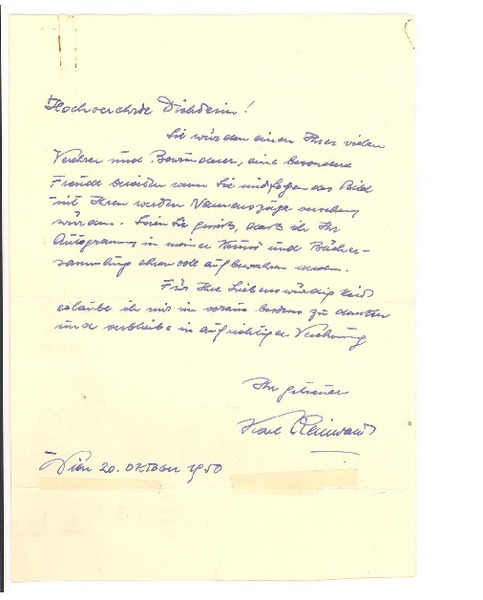 Hochverehrte Dichterin!
Sie würden einen Ihrer vielen
Verehrer und Bewunderer, eine besondere
Freude bereiten wenn Sie das Bild
mit Ihren werten Namenszüge versehen
würden. Seien Sie gewiß, dass ich Ihr
Autogramm in meiner Kunst und Bücher-
sammlung ehrenvoll aufbewahren werde.
Für Ihre Liebenswürdigkeit
erlaube ich mir im voraus bestens zu danken
und verbleibe in aufrichtiger Verehrung
Ihr getreuer
Karl
Wien 20. Oktober 1950